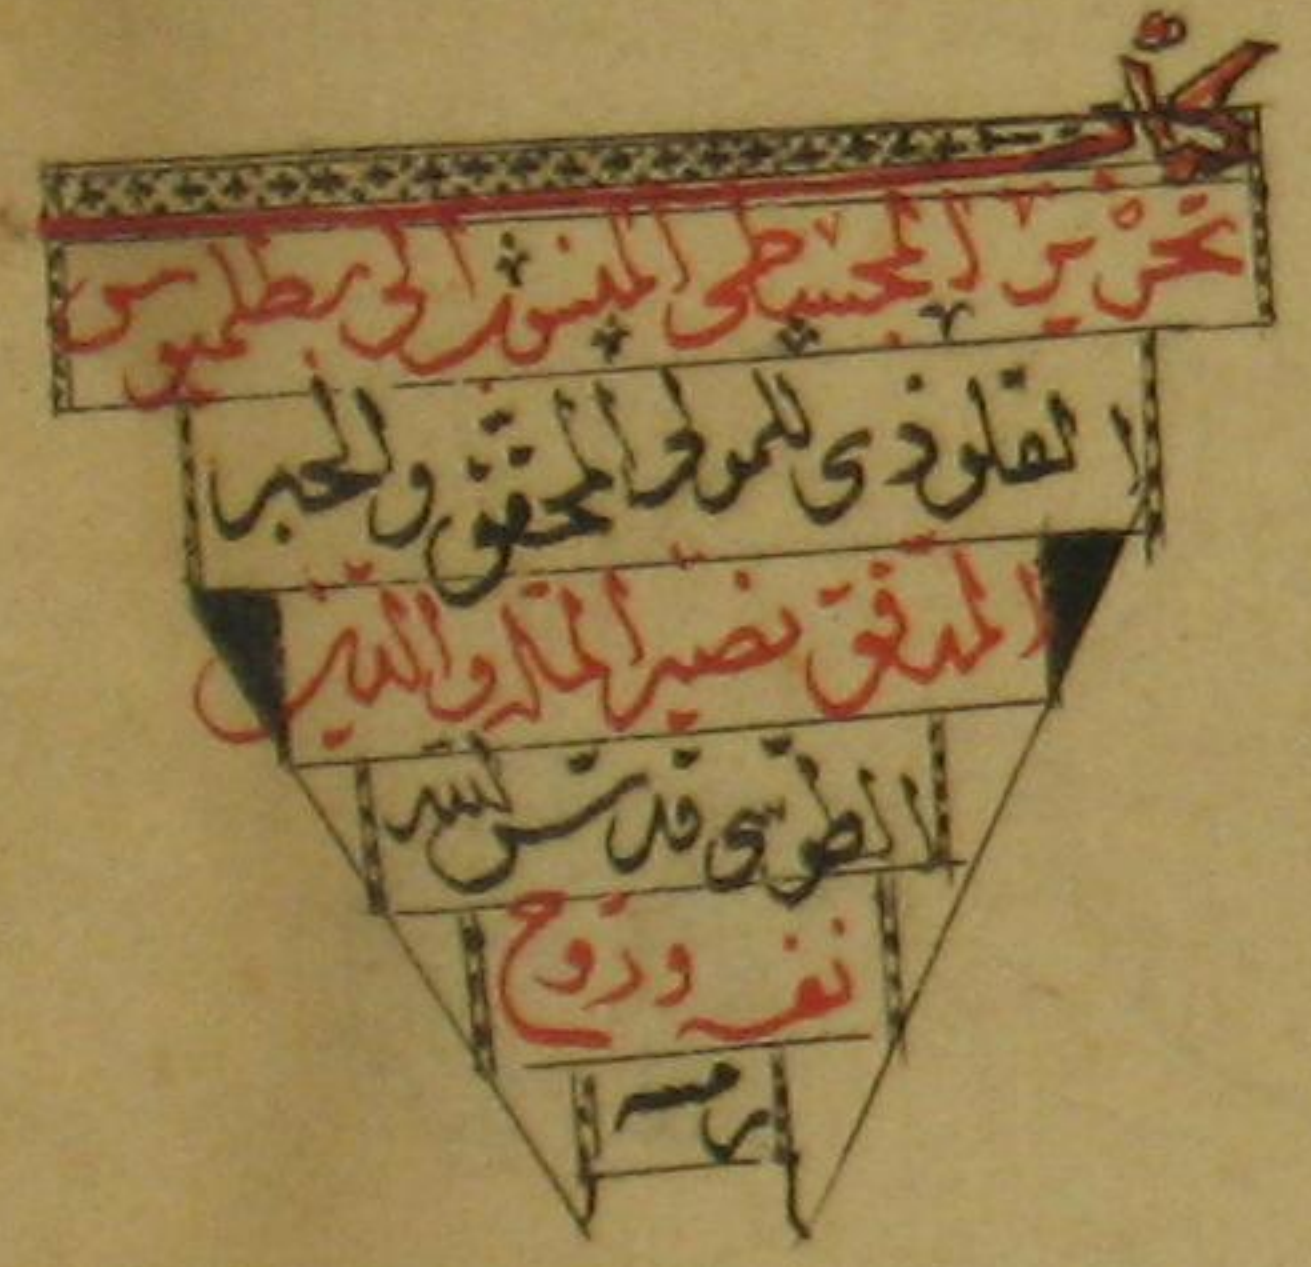 كتاب
تحرير المجسطى المنسوب الى بطلميوس
القلوذى للمولى المحقق والحبر
المدقق نصير الملة والدين
الطوسى قدس الله
نفسه وروح
رمسه